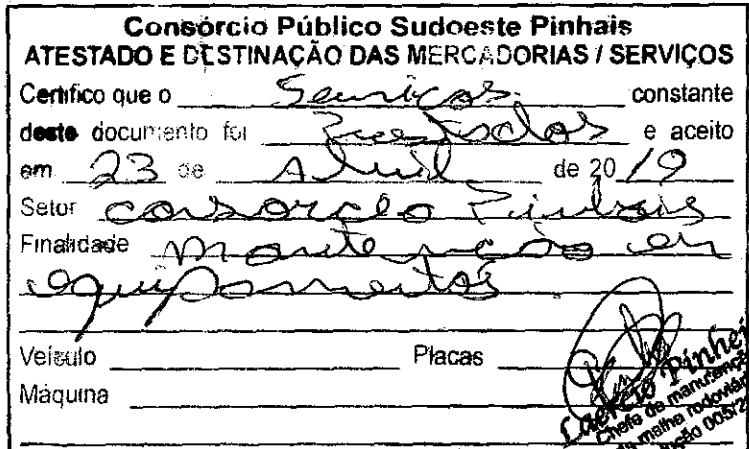 Consórcio Público Sudoeste Pinhais
ATESTADO E DESTINAÇÃO DAS MERCADORIAS / SERVIÇOS
Certifico que o Serviços constante
deste documento foi Prestados e aceito
em 23 de Abril de 2019
Setor consorcio Pinhais
Finalidade Manutencão em
equipamentos
Veículo Placas
Máquina
Laercio Pinhei
Chefe da manutençã
da malha rodoviári